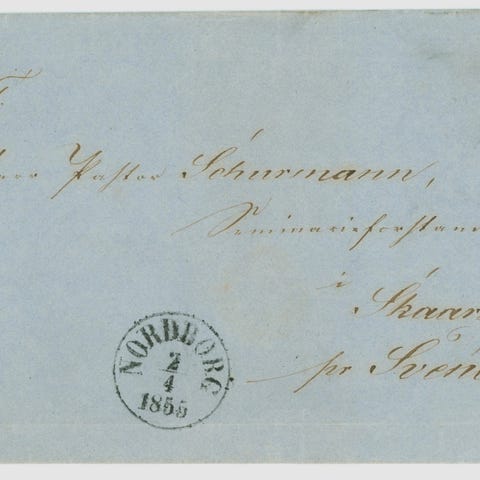 Pastor Schurmann,
Seminarieforstan
i
Skaar
pr Svend
NORDBORG
2/4
1855